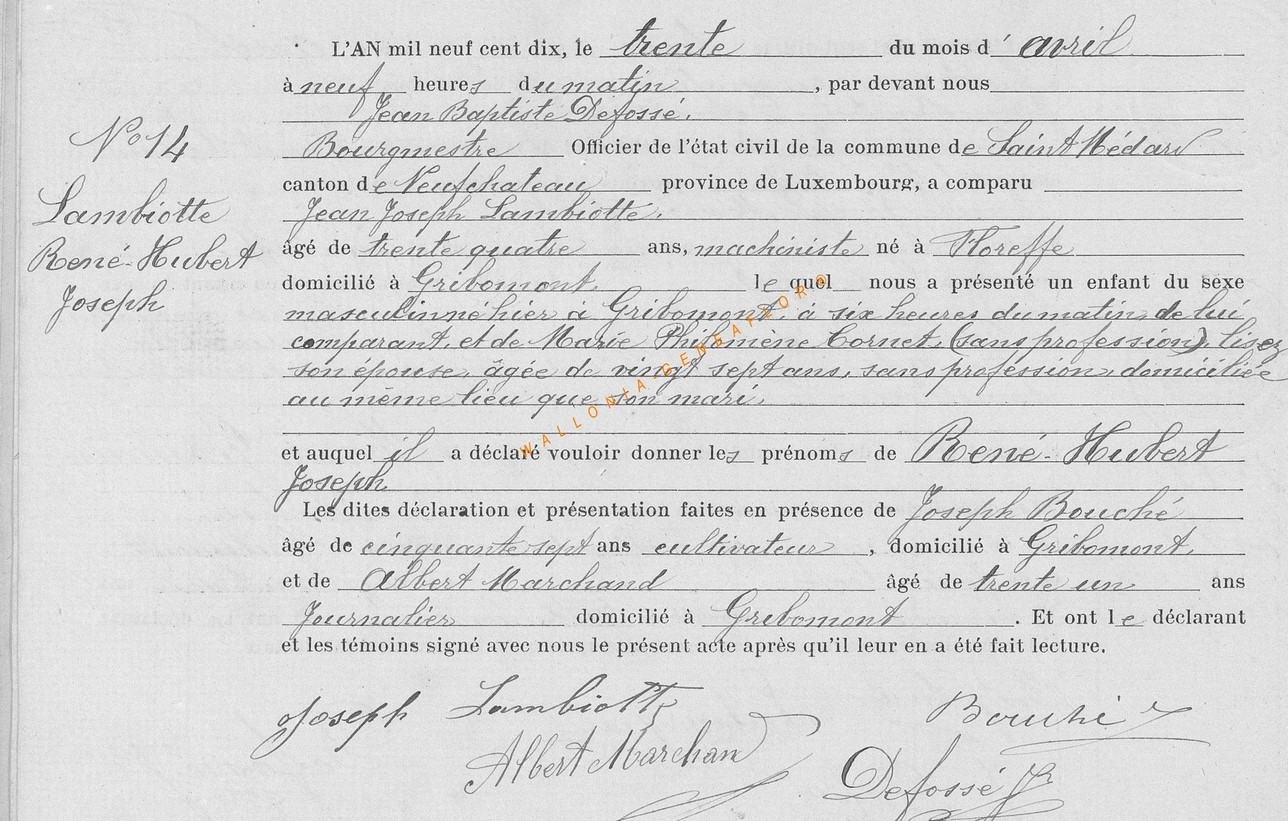 L'AN mil neuf cent dix, le trente du mois d' avril
à neuf heures du matin, par devant nous
Jean Baptiste Defossé.
Bourgmestre Officier de l'état civil de la commune de Saint Médard
canton de Neufchateau province de Luxembourg, a comparu
Jean Joseph Lambiotte.
âgé de trente quatre ans, machiniste né à Floreffe
domicilié à Gribomont. le quel nous a présenté un enfant du sexe
masculin né hier à Gribomont, à six heures du matin, de lui
comparant, et de Marie Philomène Cornet, (sans profession), lisez
son épouse, âgée de vingt sept ans, sans profession, domiciliée
au même lieu que son mari.
et auquel il a déclaré vouloir donner les prénoms de René-Hubert
Joseph
Les dites déclaration et présentation faites en présence de Joseph Bouché
âgé de cinquante-sept ans cultivateur, domicilié à Gribomont,
et de Albert Marchand âgé de trente un ans
Journalier domicilié à Gribomont. Et ont le déclarant
et les témoins signé avec nous le présent acte après qu'il leur en a été fait lecture.
N° 14
Lambiotte
René-Hubert
Joseph
Joseph Lambiotte Bouché
Albert Marchand
Defossé JB
WALLONIA.GENEAFLOR©